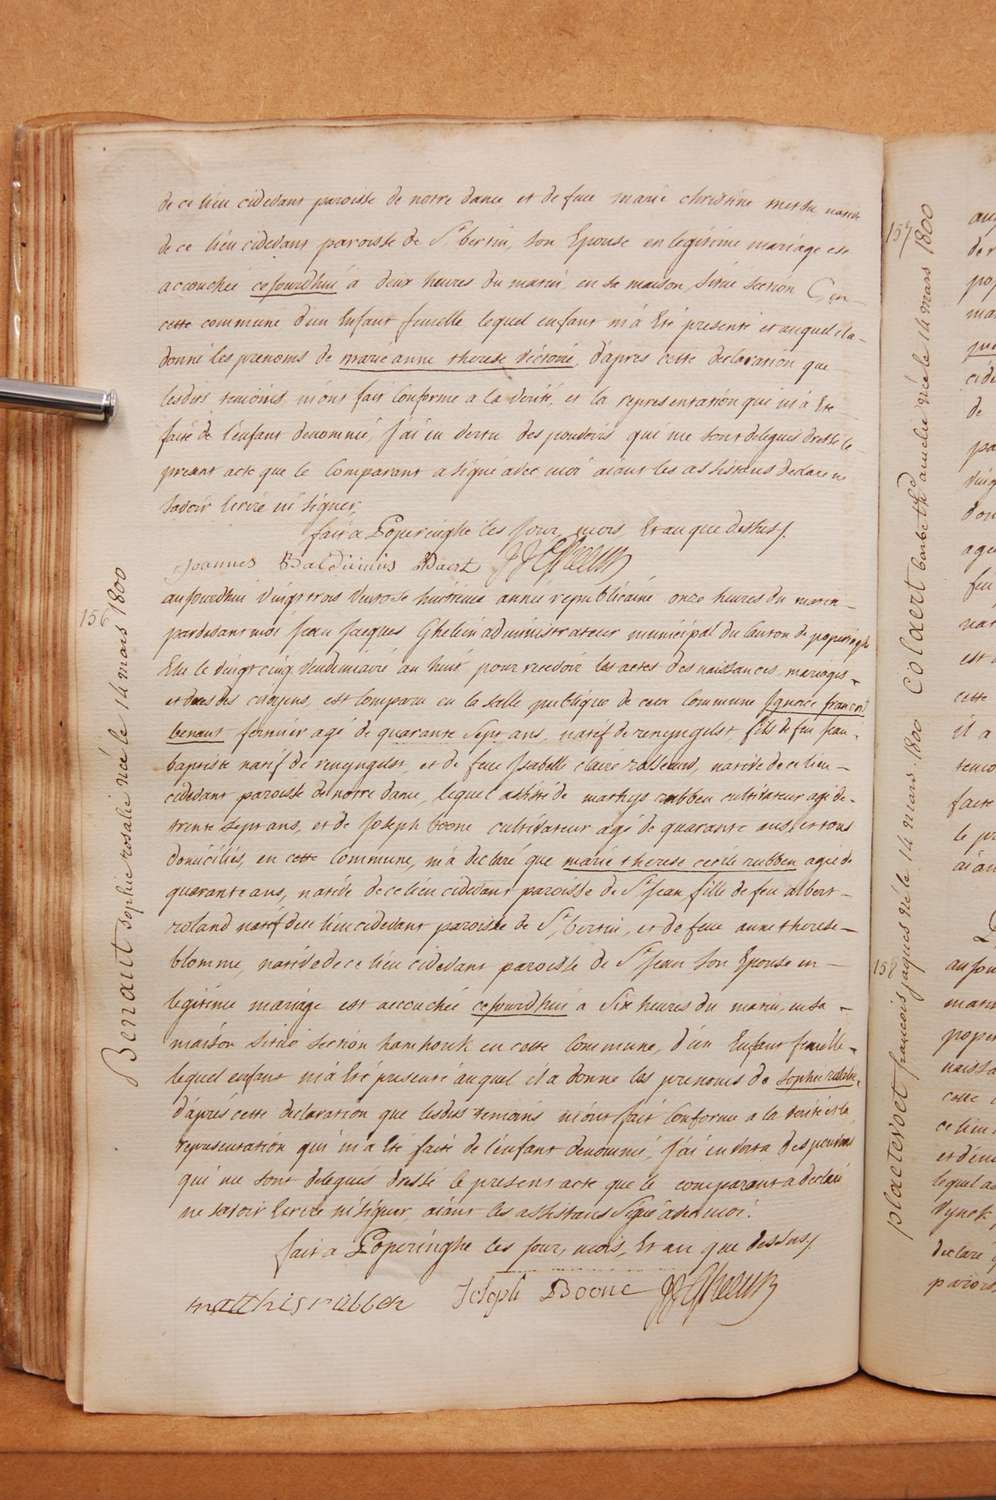 de ce lieu cidevant paroisse de notre dame et de feue marie christine native
de ce lieu cidevant paroisse de St bertin, son Epouse en legitime mariage est
accouchée cejourd'hui à deux heures du matin, en sa maison, située section C en
cette commune d'un Enfant femelle, lequel enfant m'a été presenté et auquel il a
donné les prenoms de marie anne therese victoire, d'après cette declaration que
lesdits temoins m'ont fait conforme a la verité, et la representation qui m'a été
faite de l'enfant denommé, J'ai en vertu des pouvoirs qui me sont delegués dressé le
present acte que le Comparant a signé avec moi aiant les assistans declaré ne
savoir écrire ni signer,
fait a Poperinghe les jour, mois, et an que dessus,
Joannes Balduinus Baert JJ Ghelein
156
Benaut sophie rosalie née le 14 mars 1800
aujourd'hui vingt trois ventose huitieme année republicaine onze heures du matin
pardevant moi Jean Jacques Ghelein administrateur municipal du Canton de poperinghe
Elu le vingt cinq vendemiaire an huit pour recevoir les actes des naissances, mariages
et deces des citoyens, est comparu en la salle publique de cette Commune Ignace francois
benaut fermier agé de quarante sept ans, natif de renynghelst fils de feu jean
baptiste natif de renynghelst, et de feue Isabelle claire native de ce lieu
cidevant paroisse de notre dame, lequel assisté de mathys rubben cultivateur agé de
trente sept ans, et de Joseph boone cultivateur agé de quarante ans, et tous
domiciliés, en cette Commune, m'a declaré que marie therese cecile rubben agée de
quarante ans, native de ce lieu cidevant paroisse de St Jean fille de feu albert
roland natif de ce lieu cidevant paroisse de St bertin, et de feue anne therese
blomme, native de ce lieu cidevant paroisse de St Jean son Epouse en
legitime mariage est accouchée cejourd'hui a Six heures du matin, en sa
maison située section hamhouk en cette Commune, d'un Enfant femelle,
lequel enfant m'a été presenté auquel il a donné les prenoms de sophie rosalie,
d'après cette declaration que lesdits temoins m'ont fait Conforme a la verité et la
representation qui m'a été faite de l'enfant denommé, J'ai en vertu des pouvoirs
qui me sont delegués dressé le present acte que le comparant a declaré
ne savoir écrire ni signer, aiant les assistans Signé avec moi.
fait a Poperinghe les jour, mois, et an que dessus,
matthis rubben Joseph Boone JJ Ghelein
157
Colaert barbe amelie née le 14 mars 1800
158
plaetevoet francois jaques né le 14 mars 1800